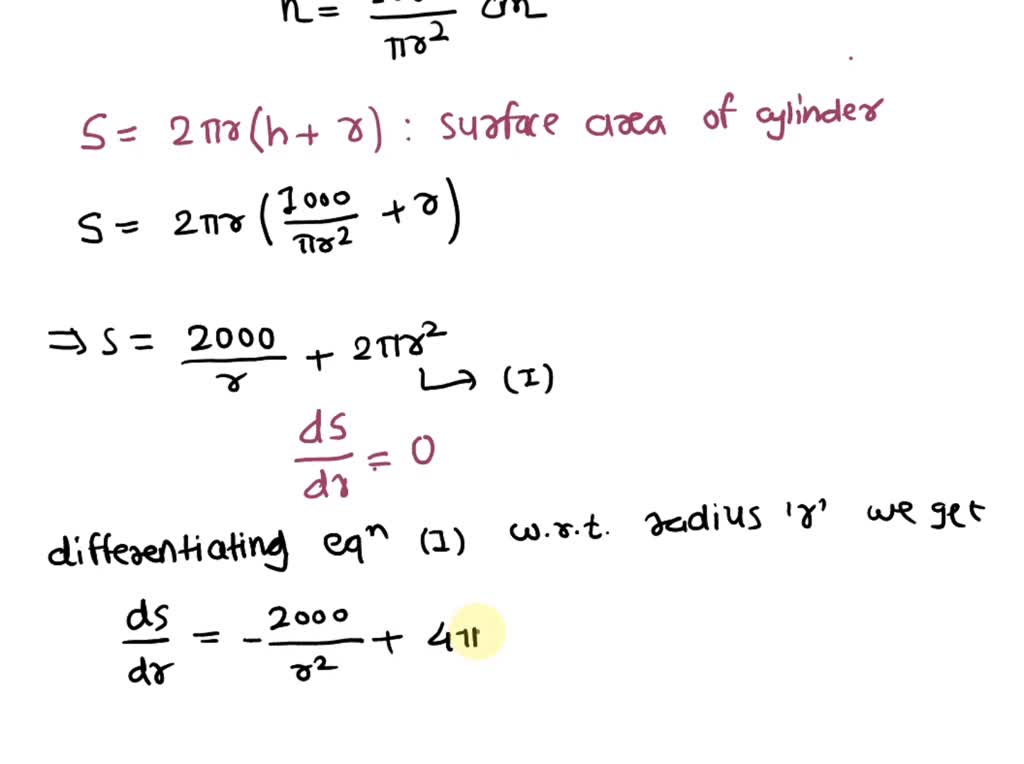 πr²
S = 2πr(h + r) : surface area of cylinder
S = 2πr (1000/πr² + r)
⇒ S = 2000/r + 2πr²
↳ (I)
ds/dr = 0
differentiating eqⁿ (I) w.r.t. radius 'r' we get
ds/dr = - 2000/r² + 4π